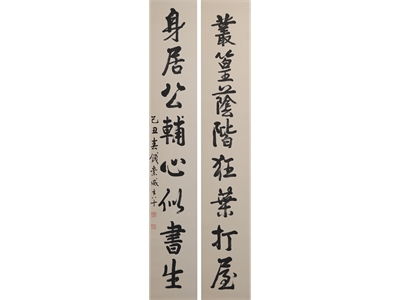 叢篁蔭階狂葉打屋
身居公輔心似書生
己丑春錢崇威